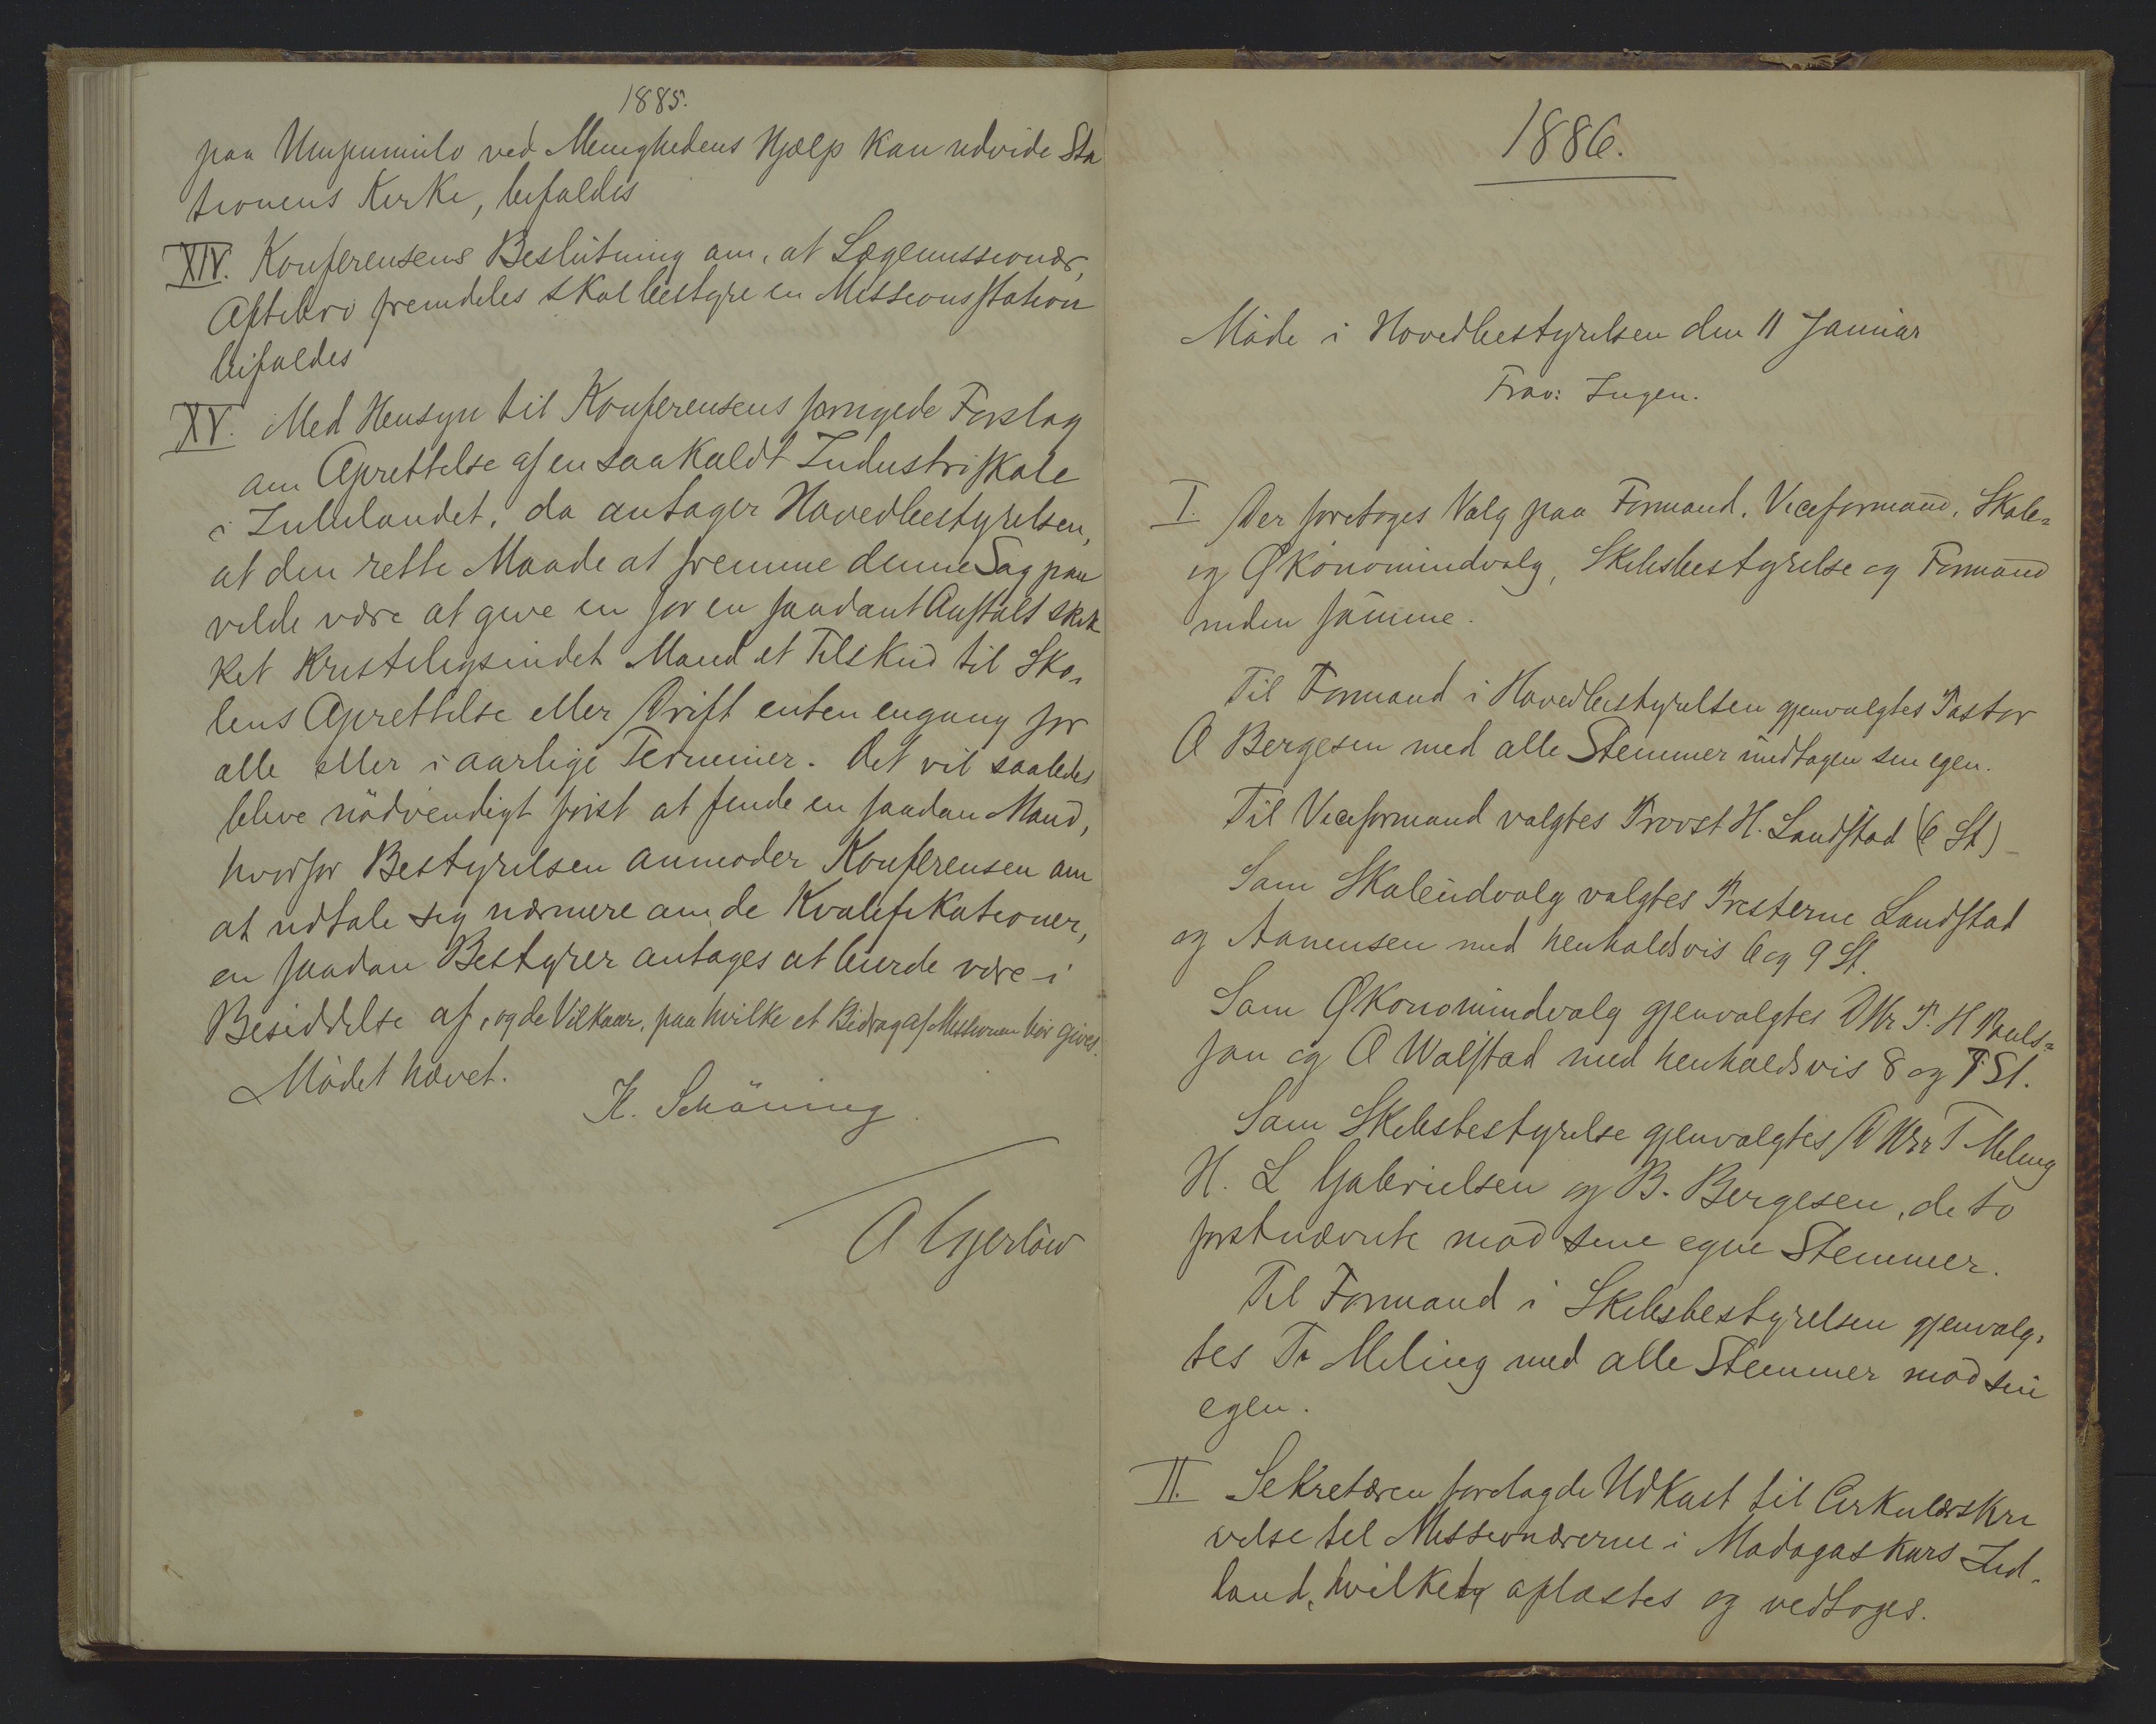 1885.
paa Umpumulo ved Menighedens Hjælp kan udvide Sta
tionens Kirke, bifaldes
XIV. Konferensens Beslutning om, at Lægemissionær,
Oftebro fremdeles skal bestyre en Missionsstation
bifaldes
XV. Med Hensyn til Konferensens fornyede Forslag
om Oprettelse af en saakaldt Industriskole
i Zululandet, da antager Hovedbestyrelsen,
at den rette Maade at fremme denne Sag paa
vilde være at give en for en saadant Anstalt skik
ket kristeligsindet Mand et Tilskud til Sko-
lens Oprettelse eller Drift enten engang for
alle eller i aarlige Terminer. Det vil saaledes
blive nödvendigt först at finde en saadan Mand,
hvorfor Bestyrelsen anmoder Konferensen om
at udtale sig nærmere om de Kvalifikationer,
en saadan Bestyrer antages at burde være i
Besiddelse af, og de Vilkaar, paa hvilke et Bidrag af Missionen bör gives.
Mödet hævet.
K. Schöning
A Gjerlöw
1886.
Möde i Hovedbestyrelsen den 11 Januar
Frav: Ingen.
I. Der foretoges Valg paa Formand, Viceformand, Skole-
og Økonomiudvalg, Skibsbestyrelse og Formand
inden samme.
Til Formand i Hovedbestyrelsen gjenvalgtes Pastor
O Bergesen med alle Stemmer undtagen sin egen.
Til Viceformand valgtes Provst H. Landstad (6 St)
Som Skoleudvalg valgtes Presterne Landstad
og Aanensen med henholdsvis 6 og 9 St.
Som Økonomiudvalg gjenvalgtes DHr P. H Pauls-
son og O Walstad med henholdsvis 8 og 7 St.
Som Skibsbestyrelse gjenvalgtes D Hrr T Meling
H. L Gabrielsen og B. Bergesen, de to
förstnævnte mod sine egne Stemmer.
Til Formand i Skibsbestyrelsen gjenvalg-
tes Tr Meling med alle Stemmer mod sin
egen.
II. Sekretæren forelagde Udkast til Cirkulærskri
velse til Missionærerne i Madagaskars Ind-
land, hvilket oplæstes og vedtoges.